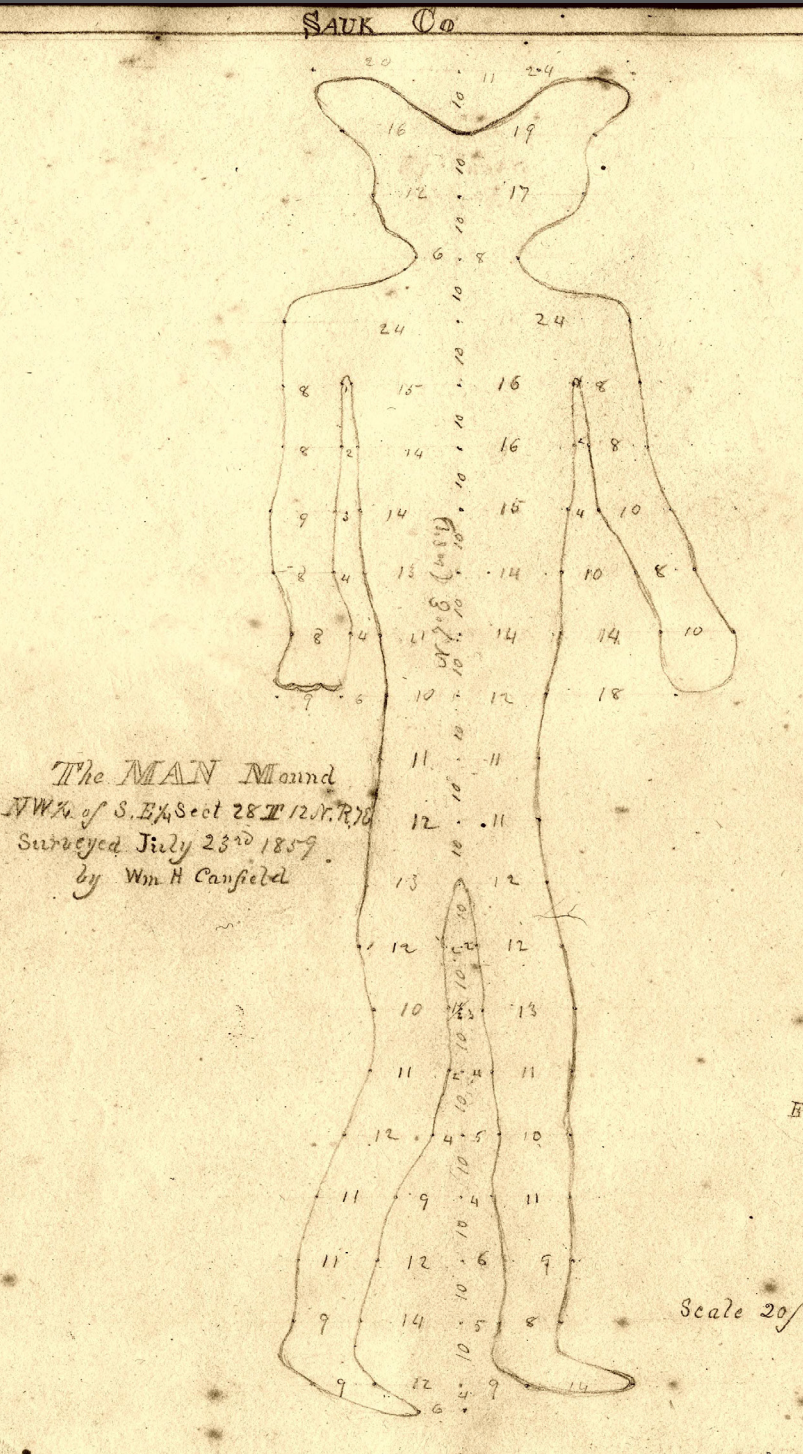 SAUK Co
20 11 24
10
16 19
10
12 17
10
6 8
10
24 24
10
8 15 16 8
10
8 2 14 16 8
10
9 3 14 15 4 10
10
8 4 13 14 10 8
10
8 4 11 14 14 10
10
9 6 10 12 18
10
11 11
10
12 11
10
13 12
10
12 12
10
10 13
10
11 11
10
12 4 5 10
10
11 9 4 11
10
11 12 6 9
10
9 14 5 8
10
9 12 4 9 14
6
The MAN Mound
NW¼ of S.E¼ Sect 28 T 12 N. R.
Surveyed July 23rd 1859
by Wm H Canfield
Scale 20